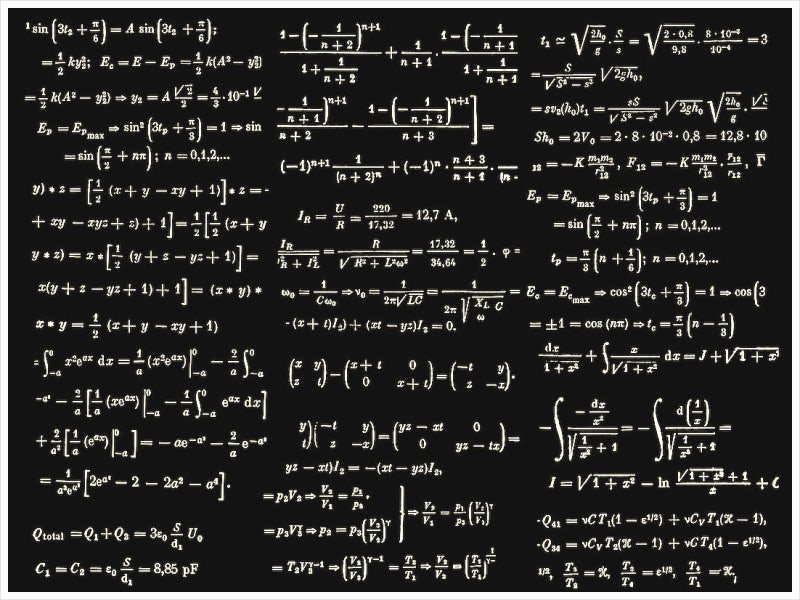 ¹ sin(3t₂ + π/6) = A sin(3t₂ + π/6);
= 1/2 ky₂²; E_c = E − E_p = 1/2 k(A² − y₂²)
= 1/2 k(A² − y₂²) ⇒ y₂ = A √2/2 = 4/3 · 10⁻¹ √
E_p = E_p_max ⇒ sin²(3t_p + π/3) = 1 ⇒ sin
= sin(π/2 + nπ); n = 0,1,2,...
y) * z = [1/2 (x + y − xy + 1)] * z =
+ xy − xyz + z) + 1] = 1/2[1/2 (x + y
y * z) = x * [1/2 (y + z − yz + 1)] =
x(y + z − yz + 1) + 1] = (x * y) *
x * y = 1/2 (x + y − xy + 1)
= ∫₋ₐ⁰ x²e^{ax} dx = 1/a (x²e^{ax})|₋ₐ⁰ − 2/a ∫₋ₐ⁰
−a² − 2/a [1/a (xe^{ax})|₋ₐ⁰ − 1/a ∫₋ₐ⁰ e^{ax} dx]
+ 2/a² [1/a (e^{ax})|₋ₐ⁰] = − ae^{−a²} − 2/a e^{−a²}
= 1/(a³e^{a²}) [2e^{a²} − 2 − 2a² − a⁴].
Q_total = Q₁ + Q₂ = 3ε₀ S/d₁ U₀
C₁ = C₂ = ε₀ S/d₁ = 8,85 pF
(1 − (−1/(n + 2))ⁿ⁺¹)/(1 + 1/(n + 2)) + 1/(n + 1) · (1 − (−1/(n + 1))/(1 + 1/(n + 1))
(−1/(n + 1))ⁿ⁺¹/(n + 2) − (1 − (−1/(n + 2))ⁿ⁺¹)/(n + 3)] =
(−1)ⁿ⁺¹ 1/(n + 2)ⁿ + (−1)ⁿ · (n + 3)/(n + 1) · (n
I_R = U/R = 220/17,32 = 12,7 A,
I_R/√(I_R² + I_L²) = R/√(R² + L²ω²) = 17,32/34,64 = 1/2 . φ =
ω₀ = 1/(Cω₀) ⇒ ν₀ = 1/(2π√LC) = 1/(2π√(X_L C/ω)) =
- (x + t)I₂) + (xt − yz)I₂ = 0.
(x y; z t) − (x + t 0; 0 x + t) = (−t y; z −x).
y)(−t y; z −x) = (yz − xt 0; 0 yz − tx) =
yz − xt)I₂ = −(xt − yz)I₂,
= p₂V₂ ⇒ V₂/V₁ = p₁/p₂ .
= p₃V₃^γ ⇒ p₂ = p₃(V₃/V₂)^γ
} ⇒ V₂/V₁ = p₁/p₃ (V₂/V₃)^γ
= T₂V₃^{γ−1} ⇒ (V₂/V₃)^{γ−1} = T₂/T₁ ⇒ V₂/V₃ = (T₂/T₁)
t₁ ≃ √(2h₀/g) · S/s = √(2 · 0,8/9,8) · 8 · 10⁻²/10⁻⁴ = 3
= S/√(S² − s²) √2gh₀,
= sv₂(h₀)t₁ = sS/√(S² − s²) √2gh₀ √(2h₀/g) ·
Sh₀ = 2V₀ = 2 · 8 · 10⁻² · 0,8 = 12,8 · 10
₁₂ = −K m₁m₂/r₁₂², F₁₂ = −K m₁m₂/r₁₂² · r₁₂/r₁₂, Γ
E_p = E_p_max ⇒ sin²(3t_p + π/3) = 1
= sin(π/2 + nπ); n = 0,1,2,...
t_p = π/3 (n + 1/6); n = 0,1,2,...
E_c = E_c_max ⇒ cos²(3t_c + π/3) = 1 ⇒ cos(3
= ±1 = cos (nπ) ⇒ t_c = π/3 (n − 1/3)
dx/√(1 + x²) + ∫ x/√(1 + x²) dx = J + √(1 + x²
−∫ (−dx/x²)/√(1/x² + 1) = −∫ d(1/x)/√(1/x² + 1) =
I = √(1 + x²) − ln (√(1 + x²) + 1)/x + C
-Q₄₁ = νCT₁(1 − ε^{1/2}) + νC_V T₁(ℋ − 1),
-Q₃₄ = νC_V T₂(ℋ − 1) + νCT₄(1 − ε^{1/2}),
1/2, T₃/T₂ = ℋ, T₃/T₄ = ε^{1/2}, T₄/T₁ = ℋ,